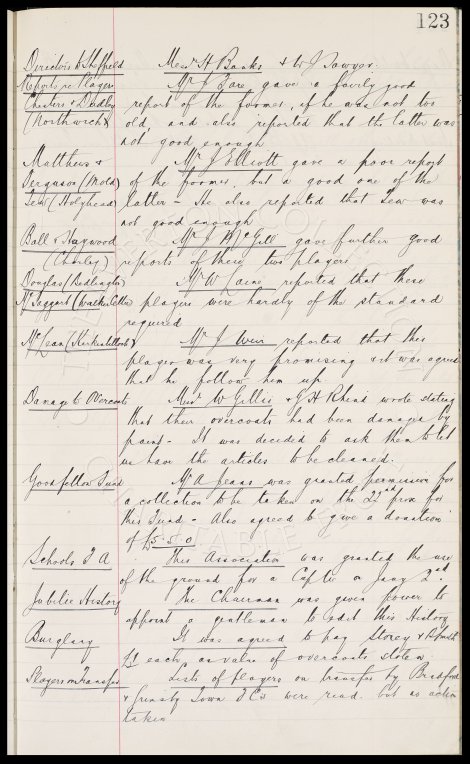 123
Directors to Sheffield Messrs H Banks & W J Sawyer.
Reports re Players Mr J Fare gave a fairly good
Chesters & Dudley report of the former, if he was not too
(Northwich) old, and also reported that the latter was
not good enough
Matthews & Mr J Ellicott gave a poor report
Ferguson (Mold) of the former but a good one of the
Tew (Holyhead) latter - He also reported that Tew was
not good enough
Ball & Haywood Mr J McGill gave further good
(Chorley) reports of these two players
Douglas (Bedlington) Mr W reported that these
McTaggart players were hardly of the standard
required
McLean (Kirkintilloch) Mr J Weir reported that this
player was very promising & it was agreed
that he follow him up.
Damage to Overcoats Messrs W Gillies & G H Rhind wrote stating
that their overcoats had been damaged by
paint - It was decided to ask them to let
us have the articles to be cleaned.
Goodfellow Fund Mr A Jeans was granted permission for
a collection to be taken on the prox for
this Fund - Also agreed to give a donation
of £5.5.0
Schools F A This Association was granted the use
of the ground for a Cup tie on Jany 2nd.
Jubilee History The Chairman was given power to
appoint a gentleman to edit this History
Burglary It was agreed to pay Storey &
£1 each, as value of overcoats stolen
Players on Transfer Lists of Players on transfer by Bradford
& Grimsby Town F C's were read. but no action
taken